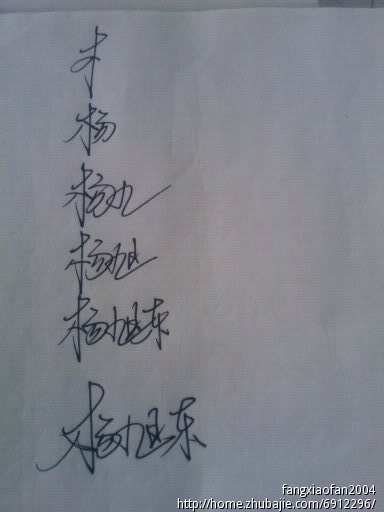 木
杨
杨九
杨旭
杨旭东
杨旭东
fangxiaofan2004
http://home.zhubajie.com/6912296/